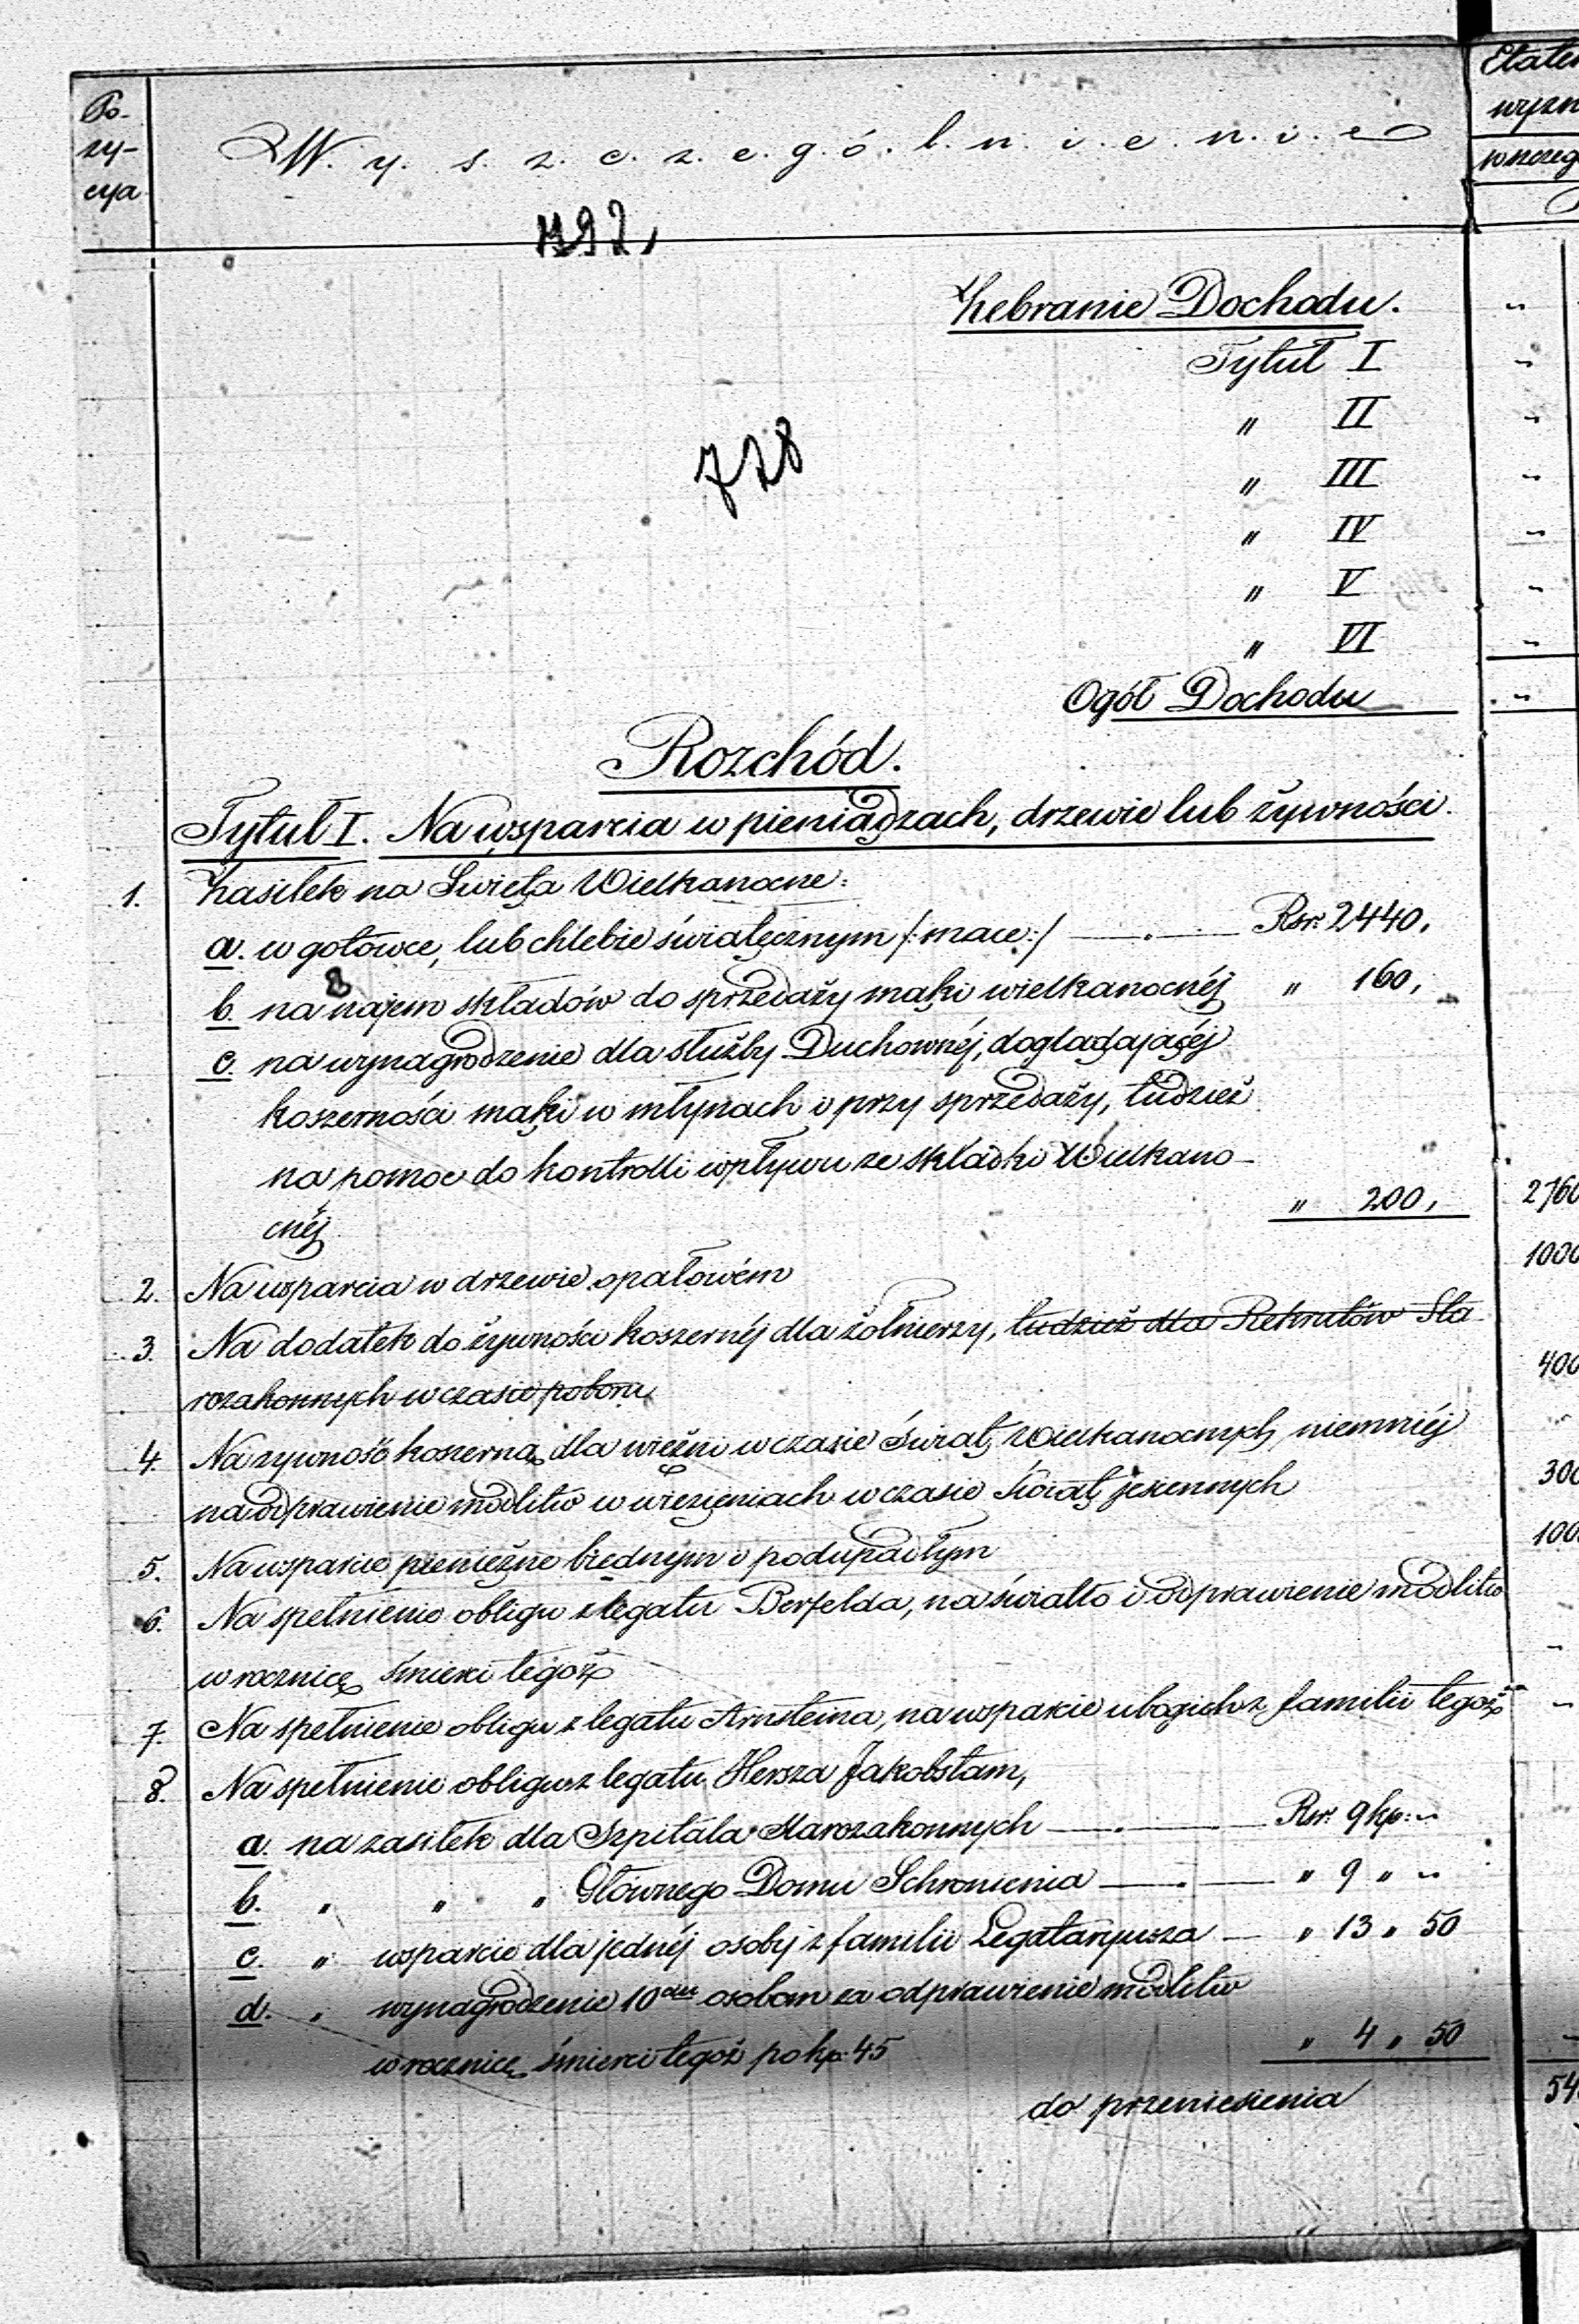 Po-
zy-
cya
W. y. s. z. c. z. e. g. ó. l. n. i. e. n. i. e
Etatem
wyzn
wszczeg
792,
Zebranie Dochodu.
Tytuł I
" II
728
" III
" IV
" V
" VI
Ogół Dochodu
Rozchód.
Tytuł I. Na wsparcia w pieniądzach, drzewie lub żywności.
1. Zasiłek na Święta Wielkanocne:
a. w gotówce, lub chlebie świątecznym /:mace:/ Rsr: 2440,
b. na najem składów do sprzedaży mąki wielkanocnéj " 160,
c. na wynagrodzenie dla służby Duchownéj, doglądającéj
koszerności mąki w młynach i przy sprzedaży, tudzież
na pomoc do kontrolli wpływu ze składki Wielkano-
cnéj " 200, 2760
2. Na wsparcia w drzewie opałowém 1000
3. Na dodatek do żywności koszernéj dla żołnierzy, tudzież dla Rekrutów Sta-
rozakonnych w czasie poboru 400
4. Na żywność koszerną dla więźni w czasie Świąt Wielkanocnych, niemniéj
na odprawienie modlitw w więzieniach w czasie Świąt jesiennych 300
5. Na wsparcie pieniężne biednym i podupadłym 100
6. Na spełnienie obligu z legatu Berfelda, na światło i odprawienie modlitw
w rocznicę śmierci tegoż
7. Na spełnienie obligu z legatu Arnsteina, na wsparcie ubogich z familii tegoż
8. Na spełnienie obligu z legatu Hersza Jakobstam,
a. na zasiłek dla Szpitala Starozakonnych Rsr. 9 kp: "
b. " " " Głównego Domu Schronienia " 9 " "
c. " wsparcie dla jednéj osoby z familii Legataryusza " 13 " 50
d. " wynagrodzenie 10ciu osobom za odprawienie modlitw
w rocznicę śmierci tegoż po kp: 45 " 4 " 50
do przeniesienia 54